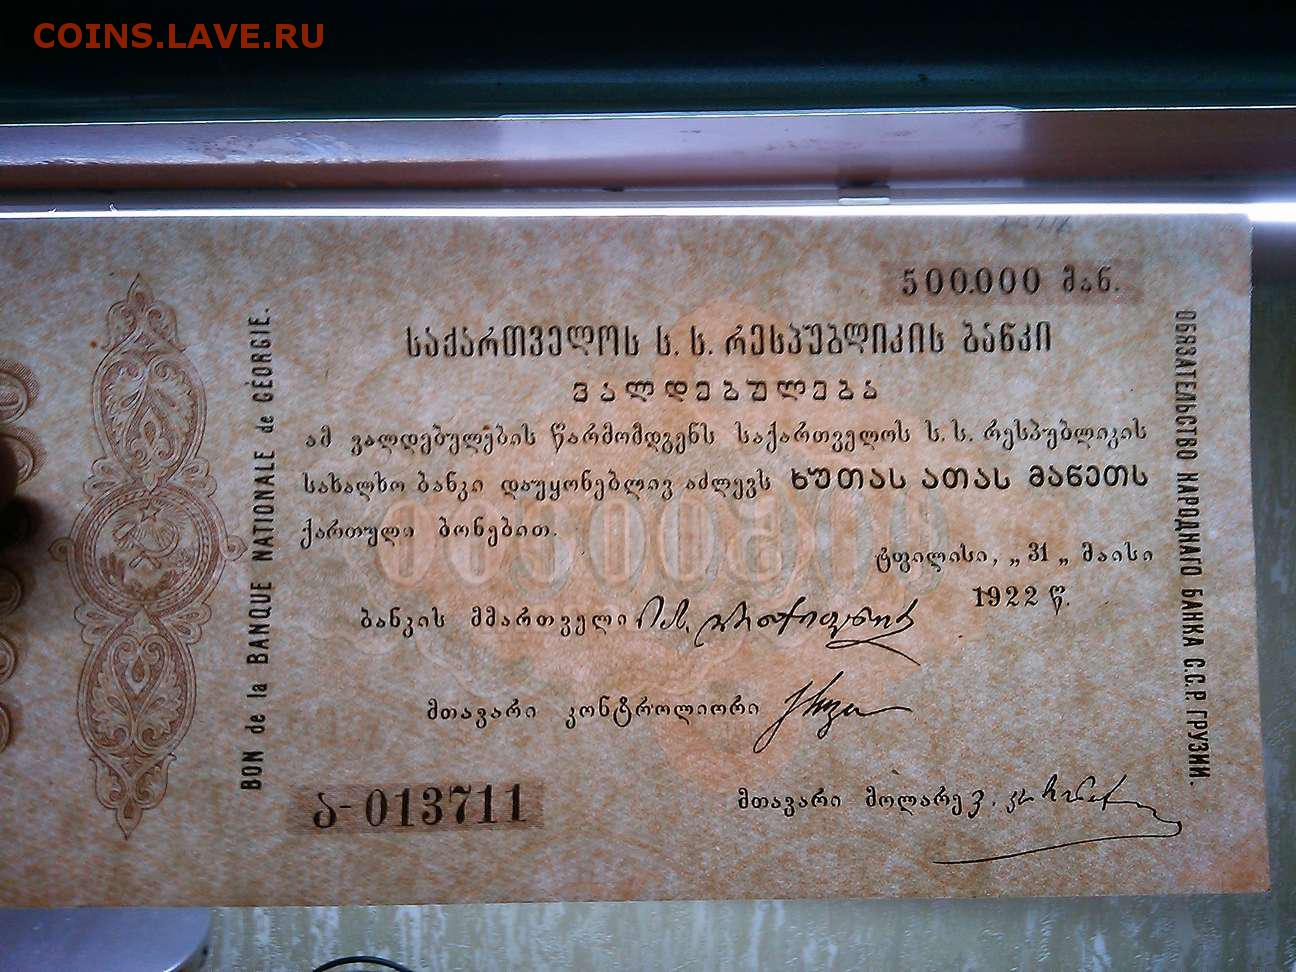 COINS.LAVE.RU
500.000 მან.
საქართველოს ს. ს. რესპუბლიკის ბანკი
ვალდებულება
ამ ვალდებულების წარმომდგენს საქართველოს ს. ს. რესპუბლიკის
სახალხო ბანკი დაუყონებლივ აძლევს ხუთას ათას მანეთს
ქართული ბონებით.
500000
ტფილისი, „ 31 „ მაისი
1922 წ.
ბანკის მმართველი
მთავარი კონტროლიორი
მთავარი მოლარე
ა-013711
BON de la BANQUE NATIONALE de GÉORGIE.
ОБЯЗАТЕЛЬСТВО НАРОДНАГО БАНКА С.С.Р. ГРУЗИИ.